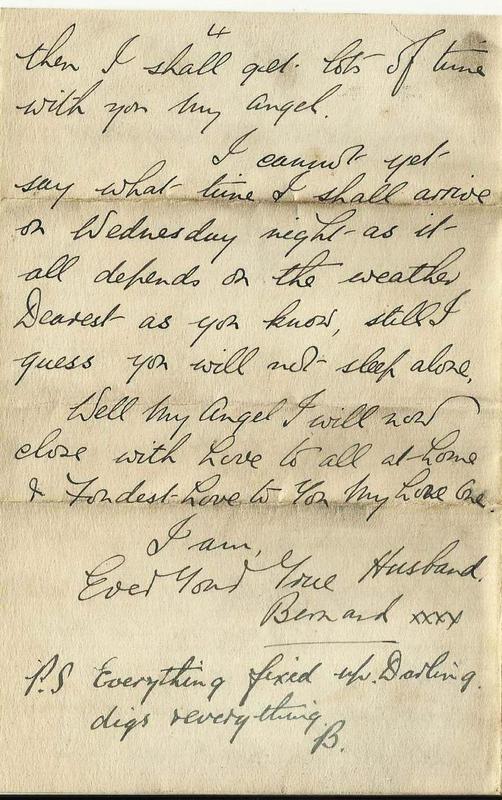 4
then I shall get lots of time
with you My Angel.
I cannot yet
say what time I shall arrive
on Wednesday night as it
all depends on the weather
Dearest as you know, still I
guess you will not sleep alone.
Well My Angel I will now
close with Love to all at home
& Fondest Love to You My Love One.
I am,
Ever Your True Husband.
Bernard xxxx
P.S Everything fixed up. Darling.
digs & everything.
B.